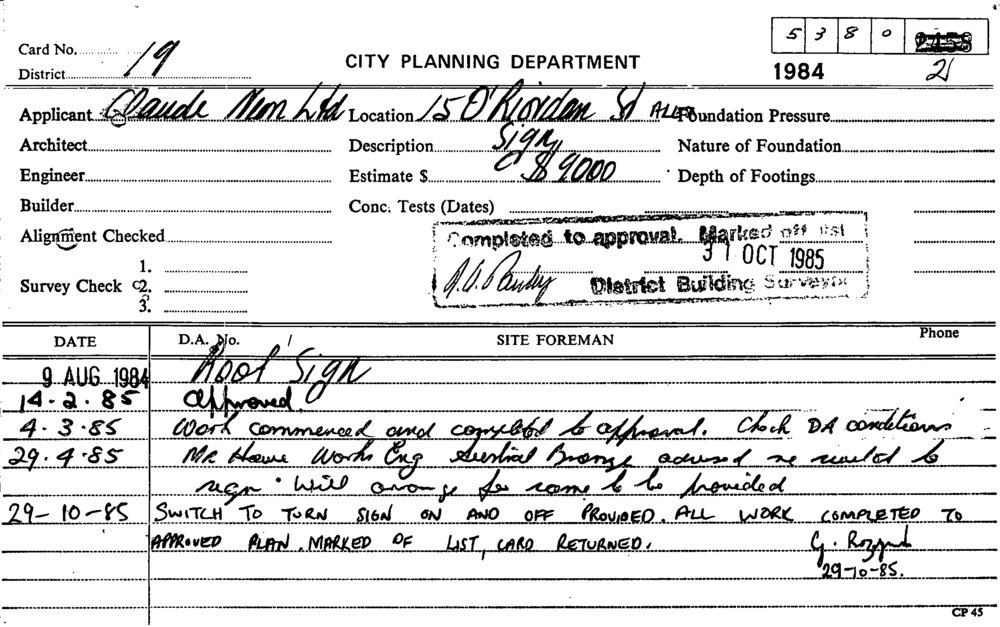 5 3 8 0
Card No. 19
District
CITY PLANNING DEPARTMENT
1984 21
Applicant Claude Neon Ltd Location 15 O'Riordan St ALEX Foundation Pressure
Architect Description Sign Nature of Foundation
Engineer Estimate $ $9000 Depth of Footings
Builder Conc. Tests (Dates)
Alignment Checked
Completed to approval. Marked off list
31 OCT 1985
District Building Surveyor
1.
Survey Check 2.
3.
DATE D.A. No. / SITE FOREMAN Phone
9 AUG 1984 Roof Sign
14.2.85 Approved
4.3.85 Work commenced and completed to approval. Check DA conditions
29.4.85 MR Howe Works Eng Bronze advised re switch to
sign. Will arrange for same to be provided
29-10-85 SWITCH TO TURN SIGN ON AND OFF PROVIDED. ALL WORK COMPLETED TO
APPROVED PLAN. MARKED OF LIST, CARD RETURNED.
29-10-85.
CP 45